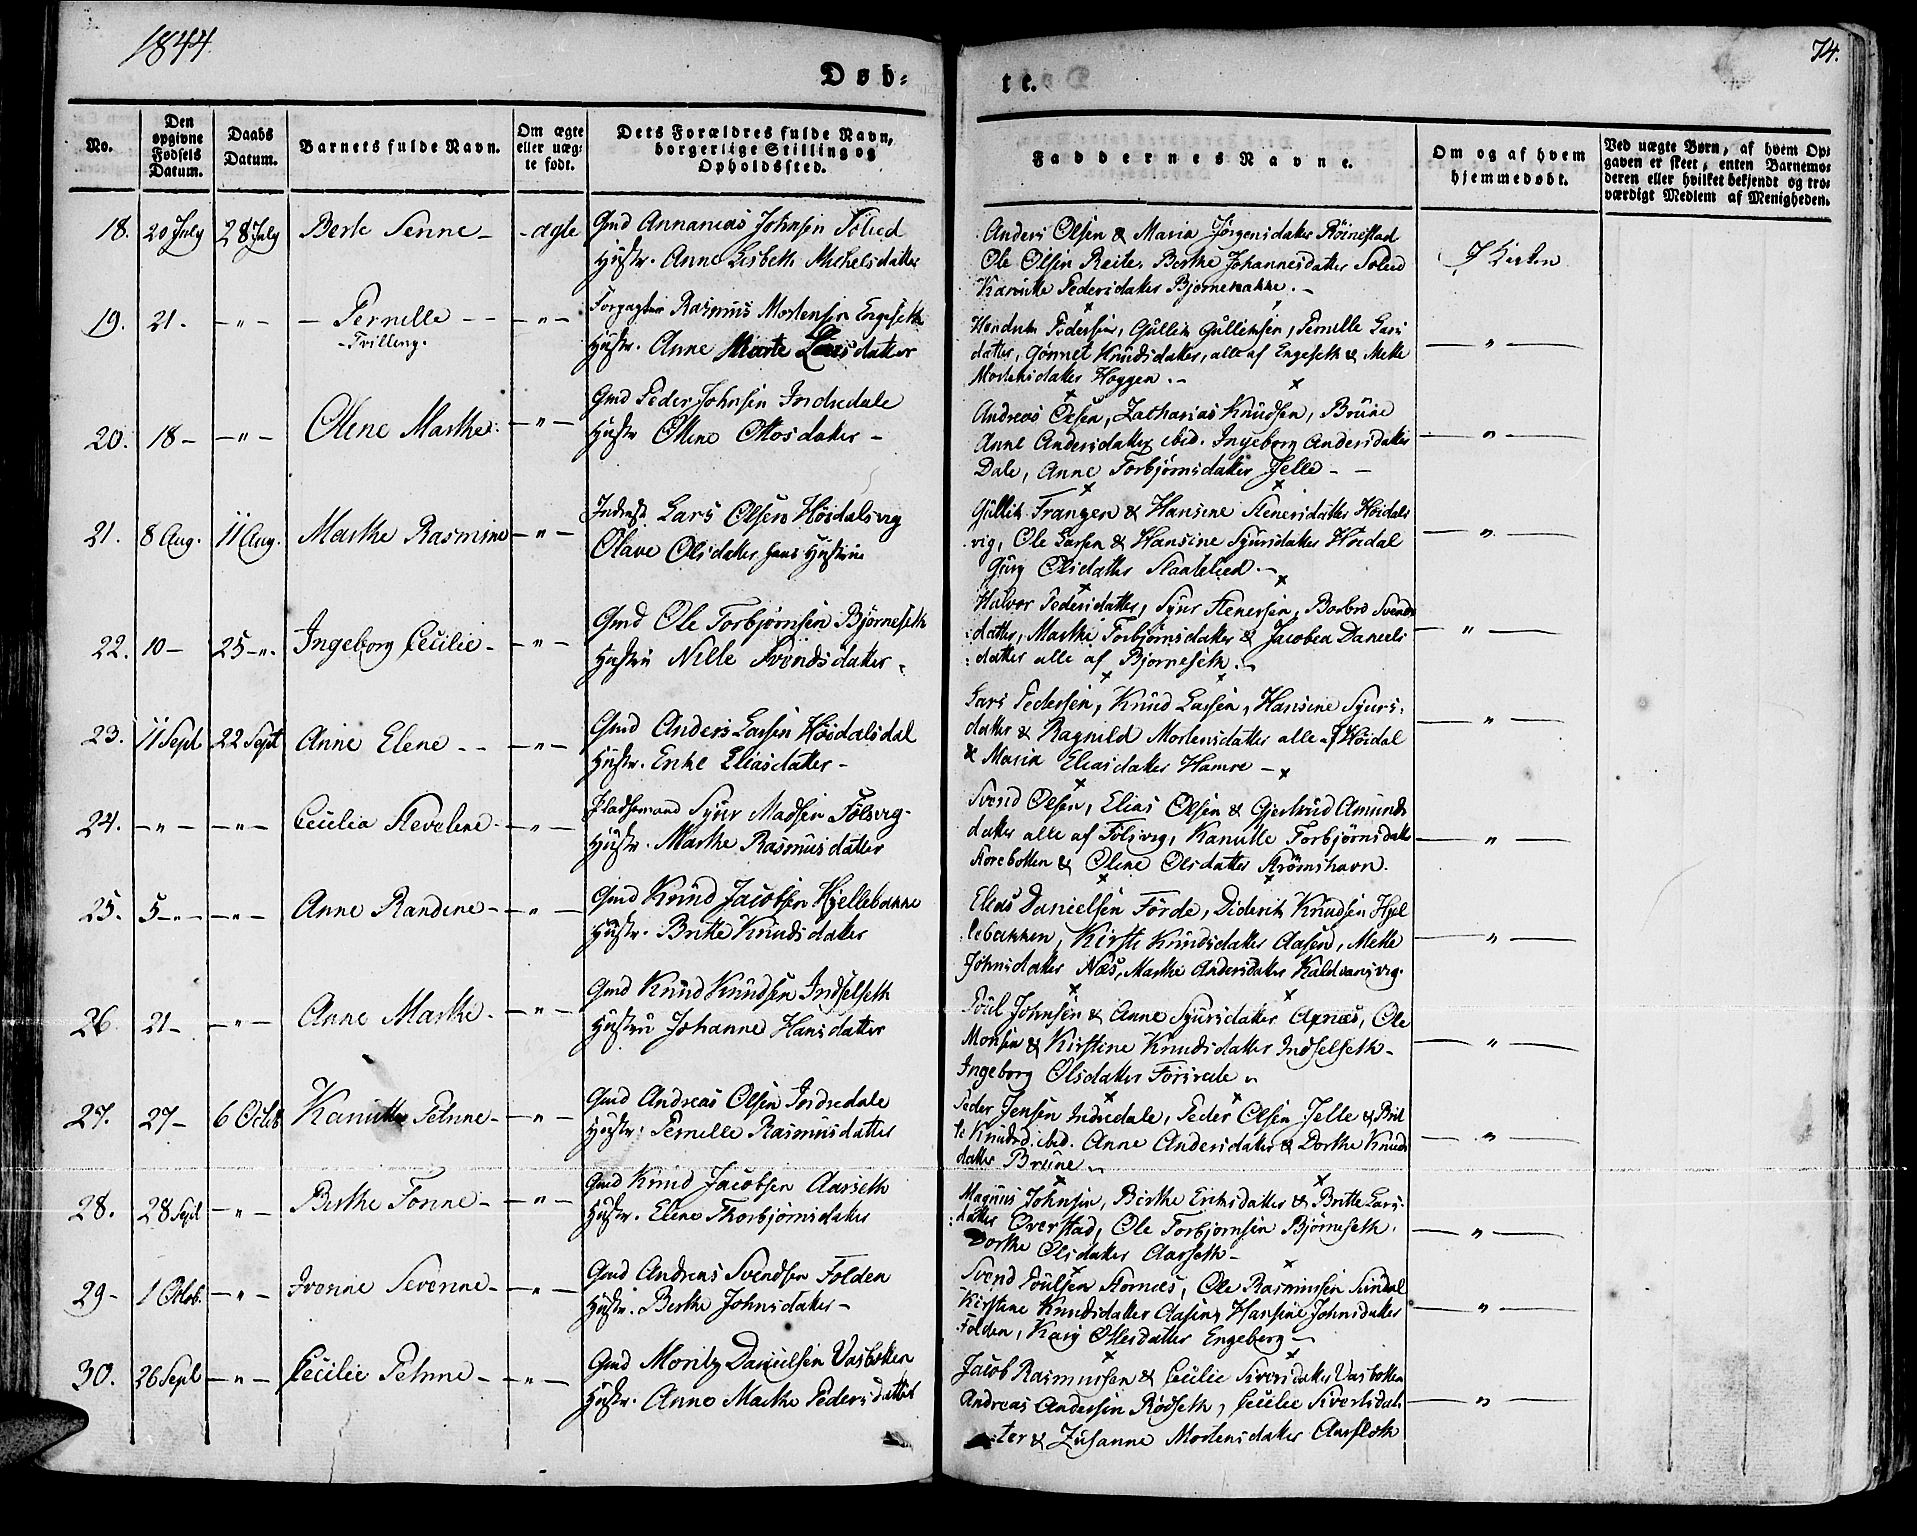 1844.
74.
Døb-
te.
No.
Den opgivne Fødsels Datum.
Daabs Datum.
Barnets fulde Navn.
Om ægte eller uæg-te født.
Dets Forældres fulde Navn, borgerlige Stilling og Opholdssted.
Faddernes Navne.
Om og af hvem hjemmedøbt.
Ved uægte Børn, af hvem Op-gaven er skeet, enten Barnemo-deren eller hvilket bekjendt og tro-værdigt Medlem af Menigheden.
18. 20 July 28 July Berte Senne - - ægte Gmd Annanias Johnsen Solied
Hustr. Anne Lisbeth Michelsdatter
Anders Olsen & Maria Jörgensdatter Röinestad
Ole Olsen Reite, Berthe Johannesdatter Solied
Kanutte Pedersdatter Bjørnebakke. -
I Kirken
19. 21. - " - - Pernelle - - - " -
- Tvilling.
Forpagter Rasmus Mortensen Engeseth
Hustr. Anne Marte Larsdatter
Pedersen, Gullik Gulliksen, Pernille Lars
datter, Gönnet Knudsdatter, alle af Engeseth & Mette
Mortensdatter Hoggen. -
- " -
20. 18 - - " - Olene Marthe. - " -
Gmd Peder Johnsen Indredale
Hustr Oline Ottosdatter -
Andreas Olsen, Zacharias Knudsen, Brune
Anne Andersdatter ibid. Ingeborg Andersdatter
Dale, Anne Torbjörnsdatter Jelle - -
- " -
21. 8 Aug. 11 Aug. Marthe Rasmine - " -
Inderst Lars Olsen Höidalsvig
Olave Olsdatter hans Hustrue
Gullik Frangen & Hansine Stenersdatter Höidals
vig, Ole Larsen & Hansine Syversdatter Höidal
Gury Olsdatter Slaatelied. -
- " -
22. 10 - 25 - " - Ingeborg Cecilie - - " -
Gmd Ole Torbjörnsen Björneseth
Hustru Nille Svendsdatter -
Halvor Pedersdatter, Syver Stenersen, Borbro Svends
datter, Marthe Torbjörnsdatter & Jacobea Daniels
datter alle af Bjorneseth. -
- " -
23. 11 Sept 22 Sept Anne Elene - - - " -
Gmd Anders Larsen Höidalsdal
Hustr. Enke Eliasdatter -
Lars Pedersen, Knud Larsen, Hansine Syvers-
datter & Ragnild Mortensdatter alle af Höidal
& Maria Eliasdatter Hamre -
- " -
24. - " - - " - Cecilia Stevelene - - " -
Pladsemand Syver Madsen Fölsvig -
Hustr. Marthe Rasmusdatter
Svend Olsen, Elias Olsen & Gjertrud Amunds
datter alle af Fölsvig, Kanutte Torbjörnsdatt
Storebotten & Oline Olsdatter Strömshavn.
- " -
25. 5 - " - - " - Anne Randine - - " -
Gmd Knud Jacobsen Hjellebakke
Hustr. Britte Knudsdatter
Elias Danielsen Förde, Diderik Knudsen Hjel
lebakken, Kirsti Knudsdatter Aasen, Mette
Johnsdatter Næs, Marthe Andersdatter Kaldvansvig.
- " -
26. 21 - - " - Anne Marthe - - " -
Gmd Knud Knudsen Indselseth
Hustru Johanne Hansdatter
Poul Johnsen & Anne Syversdatter Apnæs, Ole
Monsen & Kirstine Knudsdatter Indselseth -
Ingeborg Olsdatter
- " -
27. 27 - 6 Octob Kanutta Petrine - - " -
Gmd Andreas Olsen Indredale
Hustr. Pernelle Rasmusdatter
Peder Jensen Indredale, Peder Olsen Jelle & Brit
te Knudsd. ibid. Anne Andersdatter & Dorthe Knuds
datter Brune -
- " -
28. 28 Sept - " - Berthe Tonne - - " -
Gmd Knud Jacobsen Aarseth
Hustr. Elene Thorbjörnsdatter
Magnus Johnsen, Berthe Eriksdatter & Britte Lars-
datter Overstad, Ole Torbjornsen Björneseth.
Dorthe Olsdatter Aarseth -
- " -
29 - 1 Octob. - " - Ivonne Severine - - " -
Gmd Andreas Svendsen Folden
Hustr. Berthe Johnsdatter -
Svend Poulsen Stornæs, Ole Rasmussen Sundal
Kirstine Knudsdatter Aasen, Hansine Johnsdatter
Folden, Kary Ottesdatter Engeberg -
- " -
30. 26 Sept - " - Cecilie Petrine - - " -
Gmd Moritz Danielsen Vasbotten
Hustr. Anne Marthe Pedersdatter
Jacob Rasmussen & Cecilie Siversdatter Vasbotten
Andreas Andersen Rödseth, Cecilie Sivertsdat
ter & Zusanne Mortensdatter Aarseth
- " -